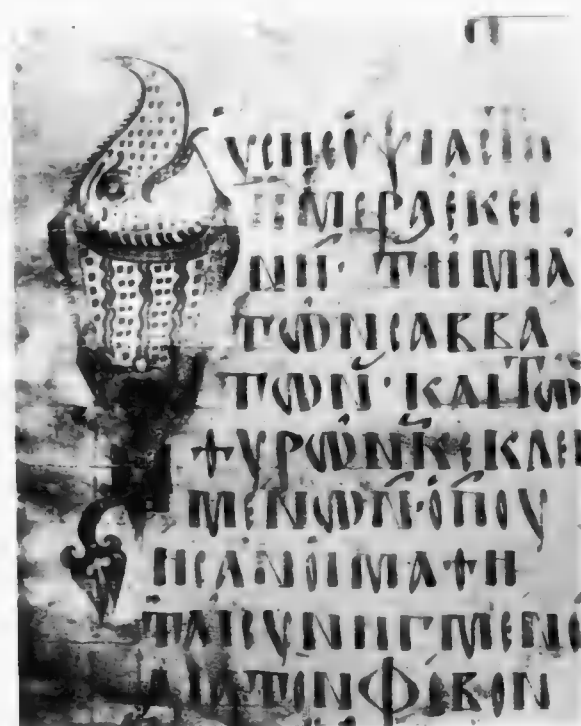 ΥϹΗϹΟΨΙΑϹΤΗ
ΗΜΕΡΑΕΚΕΙ
ΝΗ· ΤΗΜΙΑ
ΤΩΝϹΑΒΒΑ
ΤΩΝ· ΚΑΙΤΩ
ΘΥΡΩΝΚΕΚΛΕΙ
ΜΕΝΩΝ·ΟΠΟΥ
ΗϹΑΝΟΙΜΑΘΗ
ΤΑΙϹΥΝΗΓΜΕΝΟ
ΔΙΑΤΟΝΦΟΒΟΝ